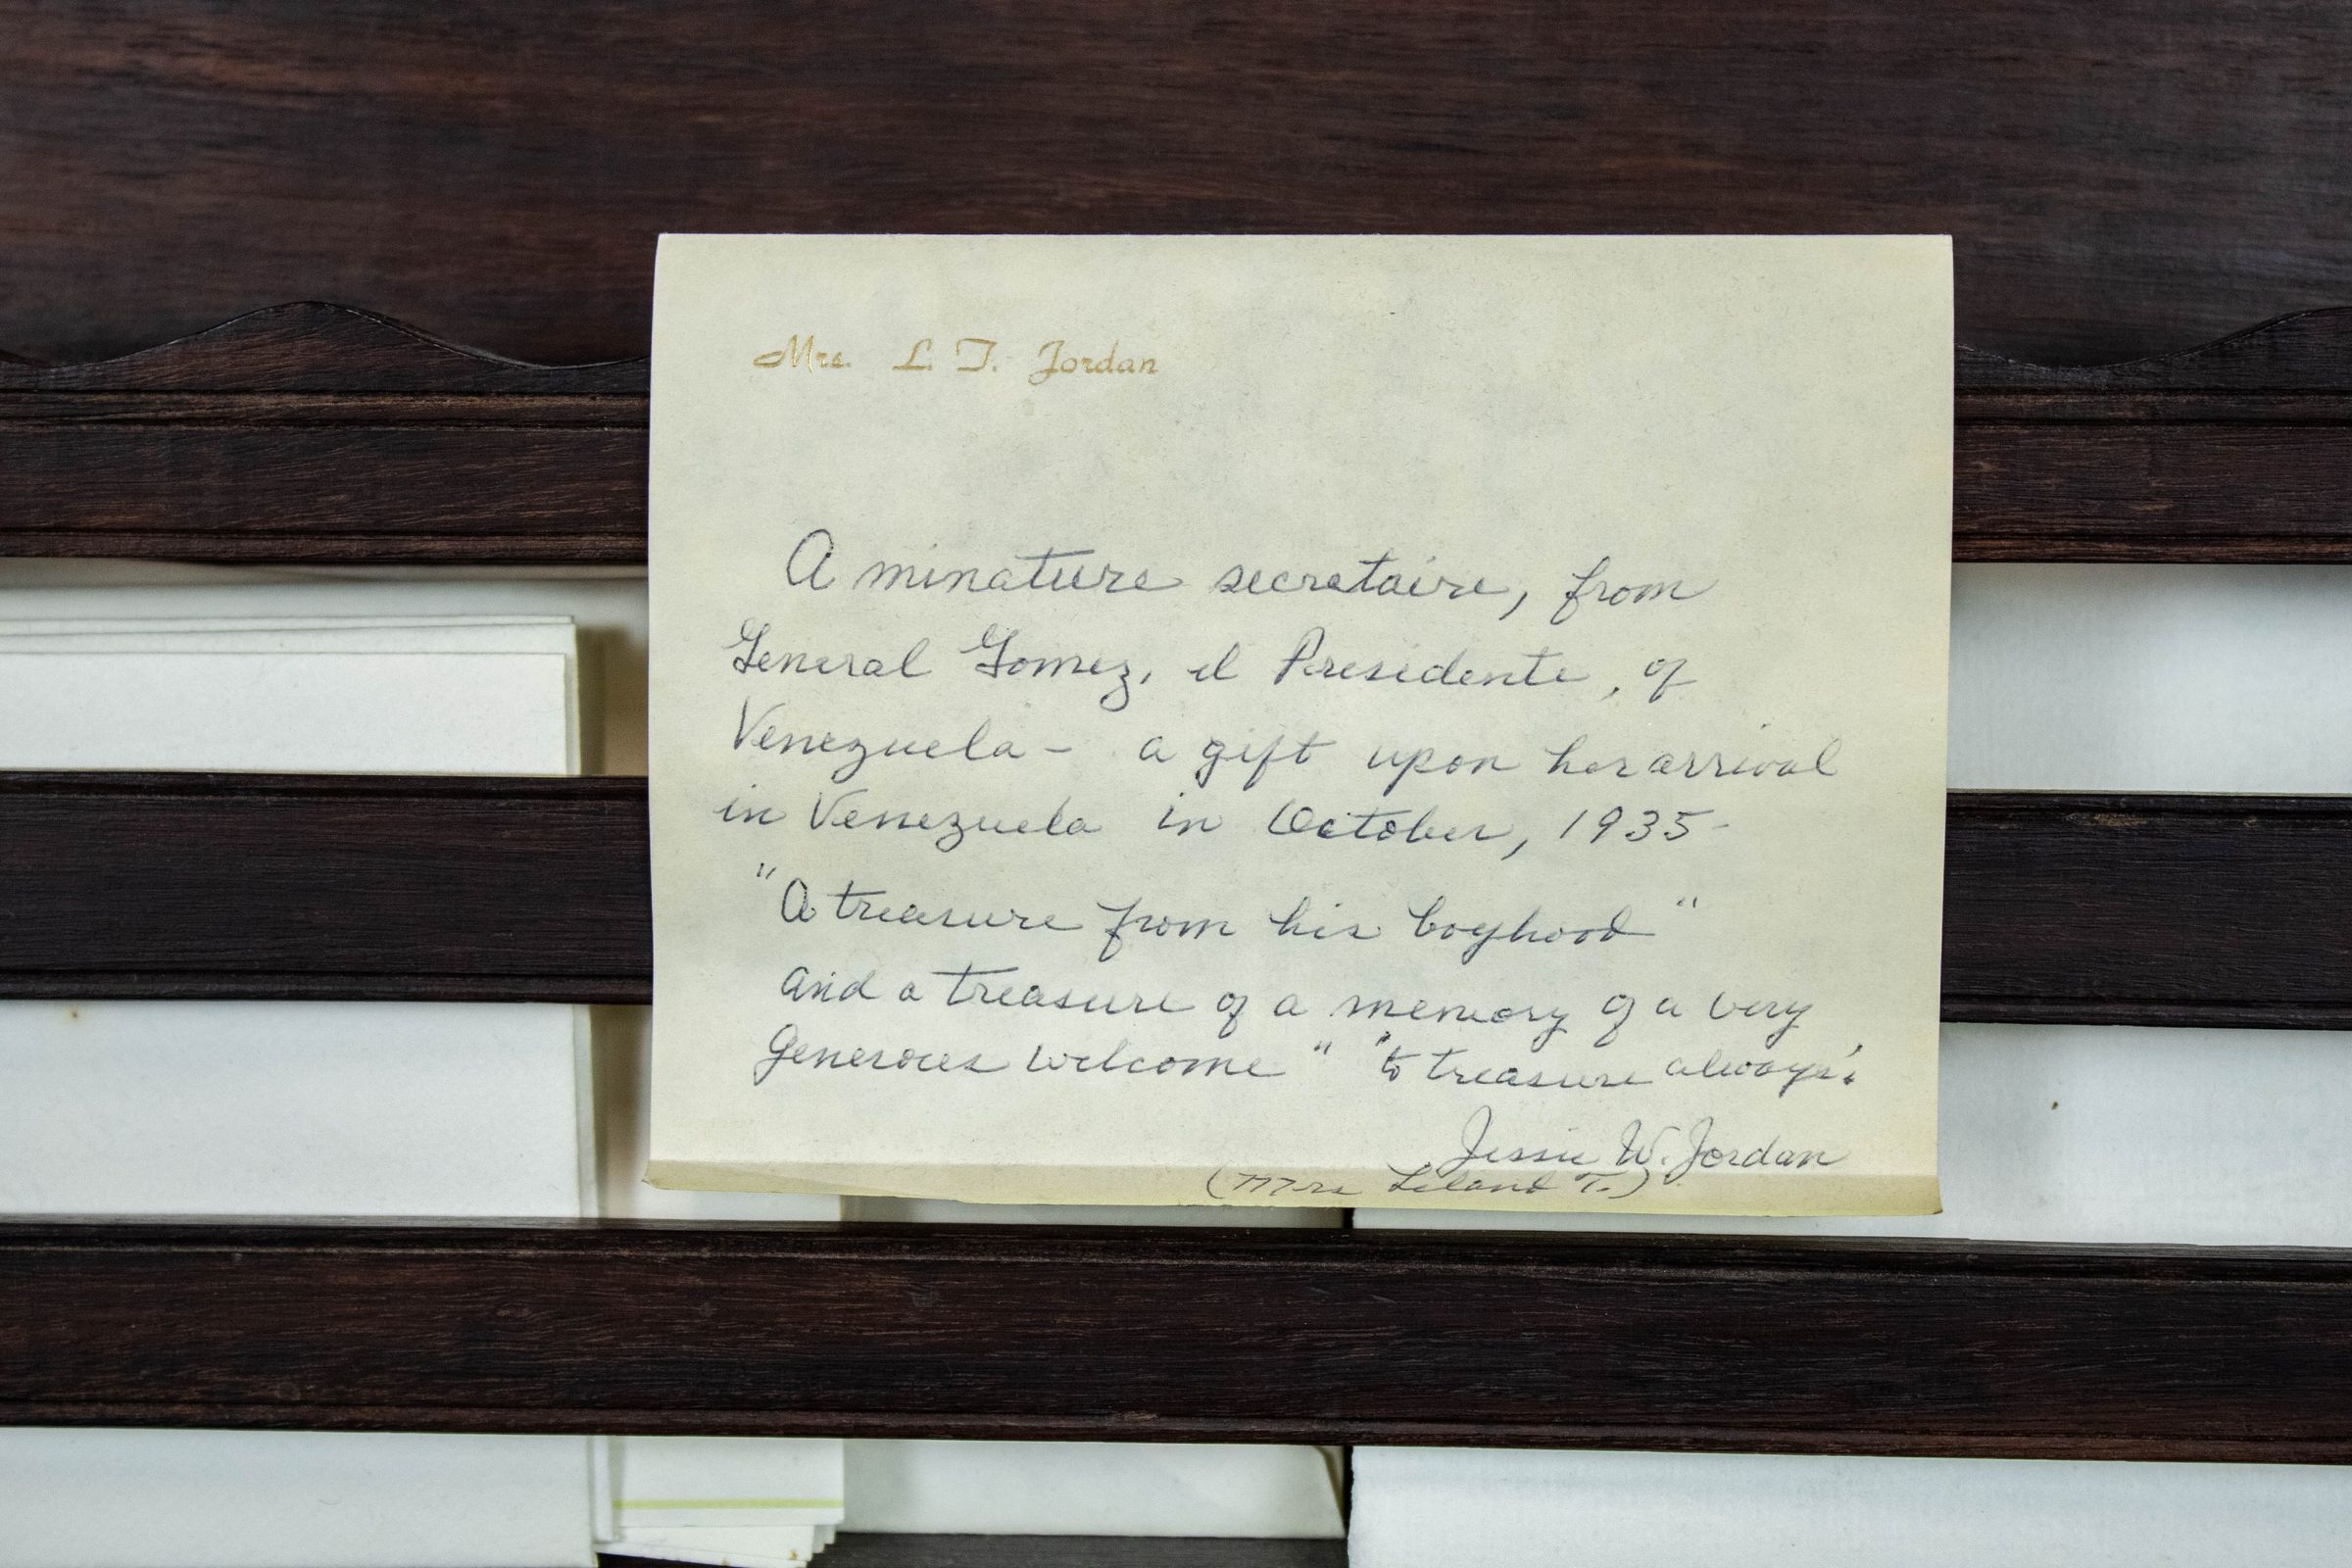 Mrs. L. T. Jordan
A minature secretaire, from
General Gomez, el Presidente, of
Venezuela - a gift upon her arrival
in Venezuela in October, 1935-
"A treasure from his boyhood"
and a treasure of a memory of a very
generous welcome" "to treasure always".
Jessie W. Jordan
(Mrs Leland T.)